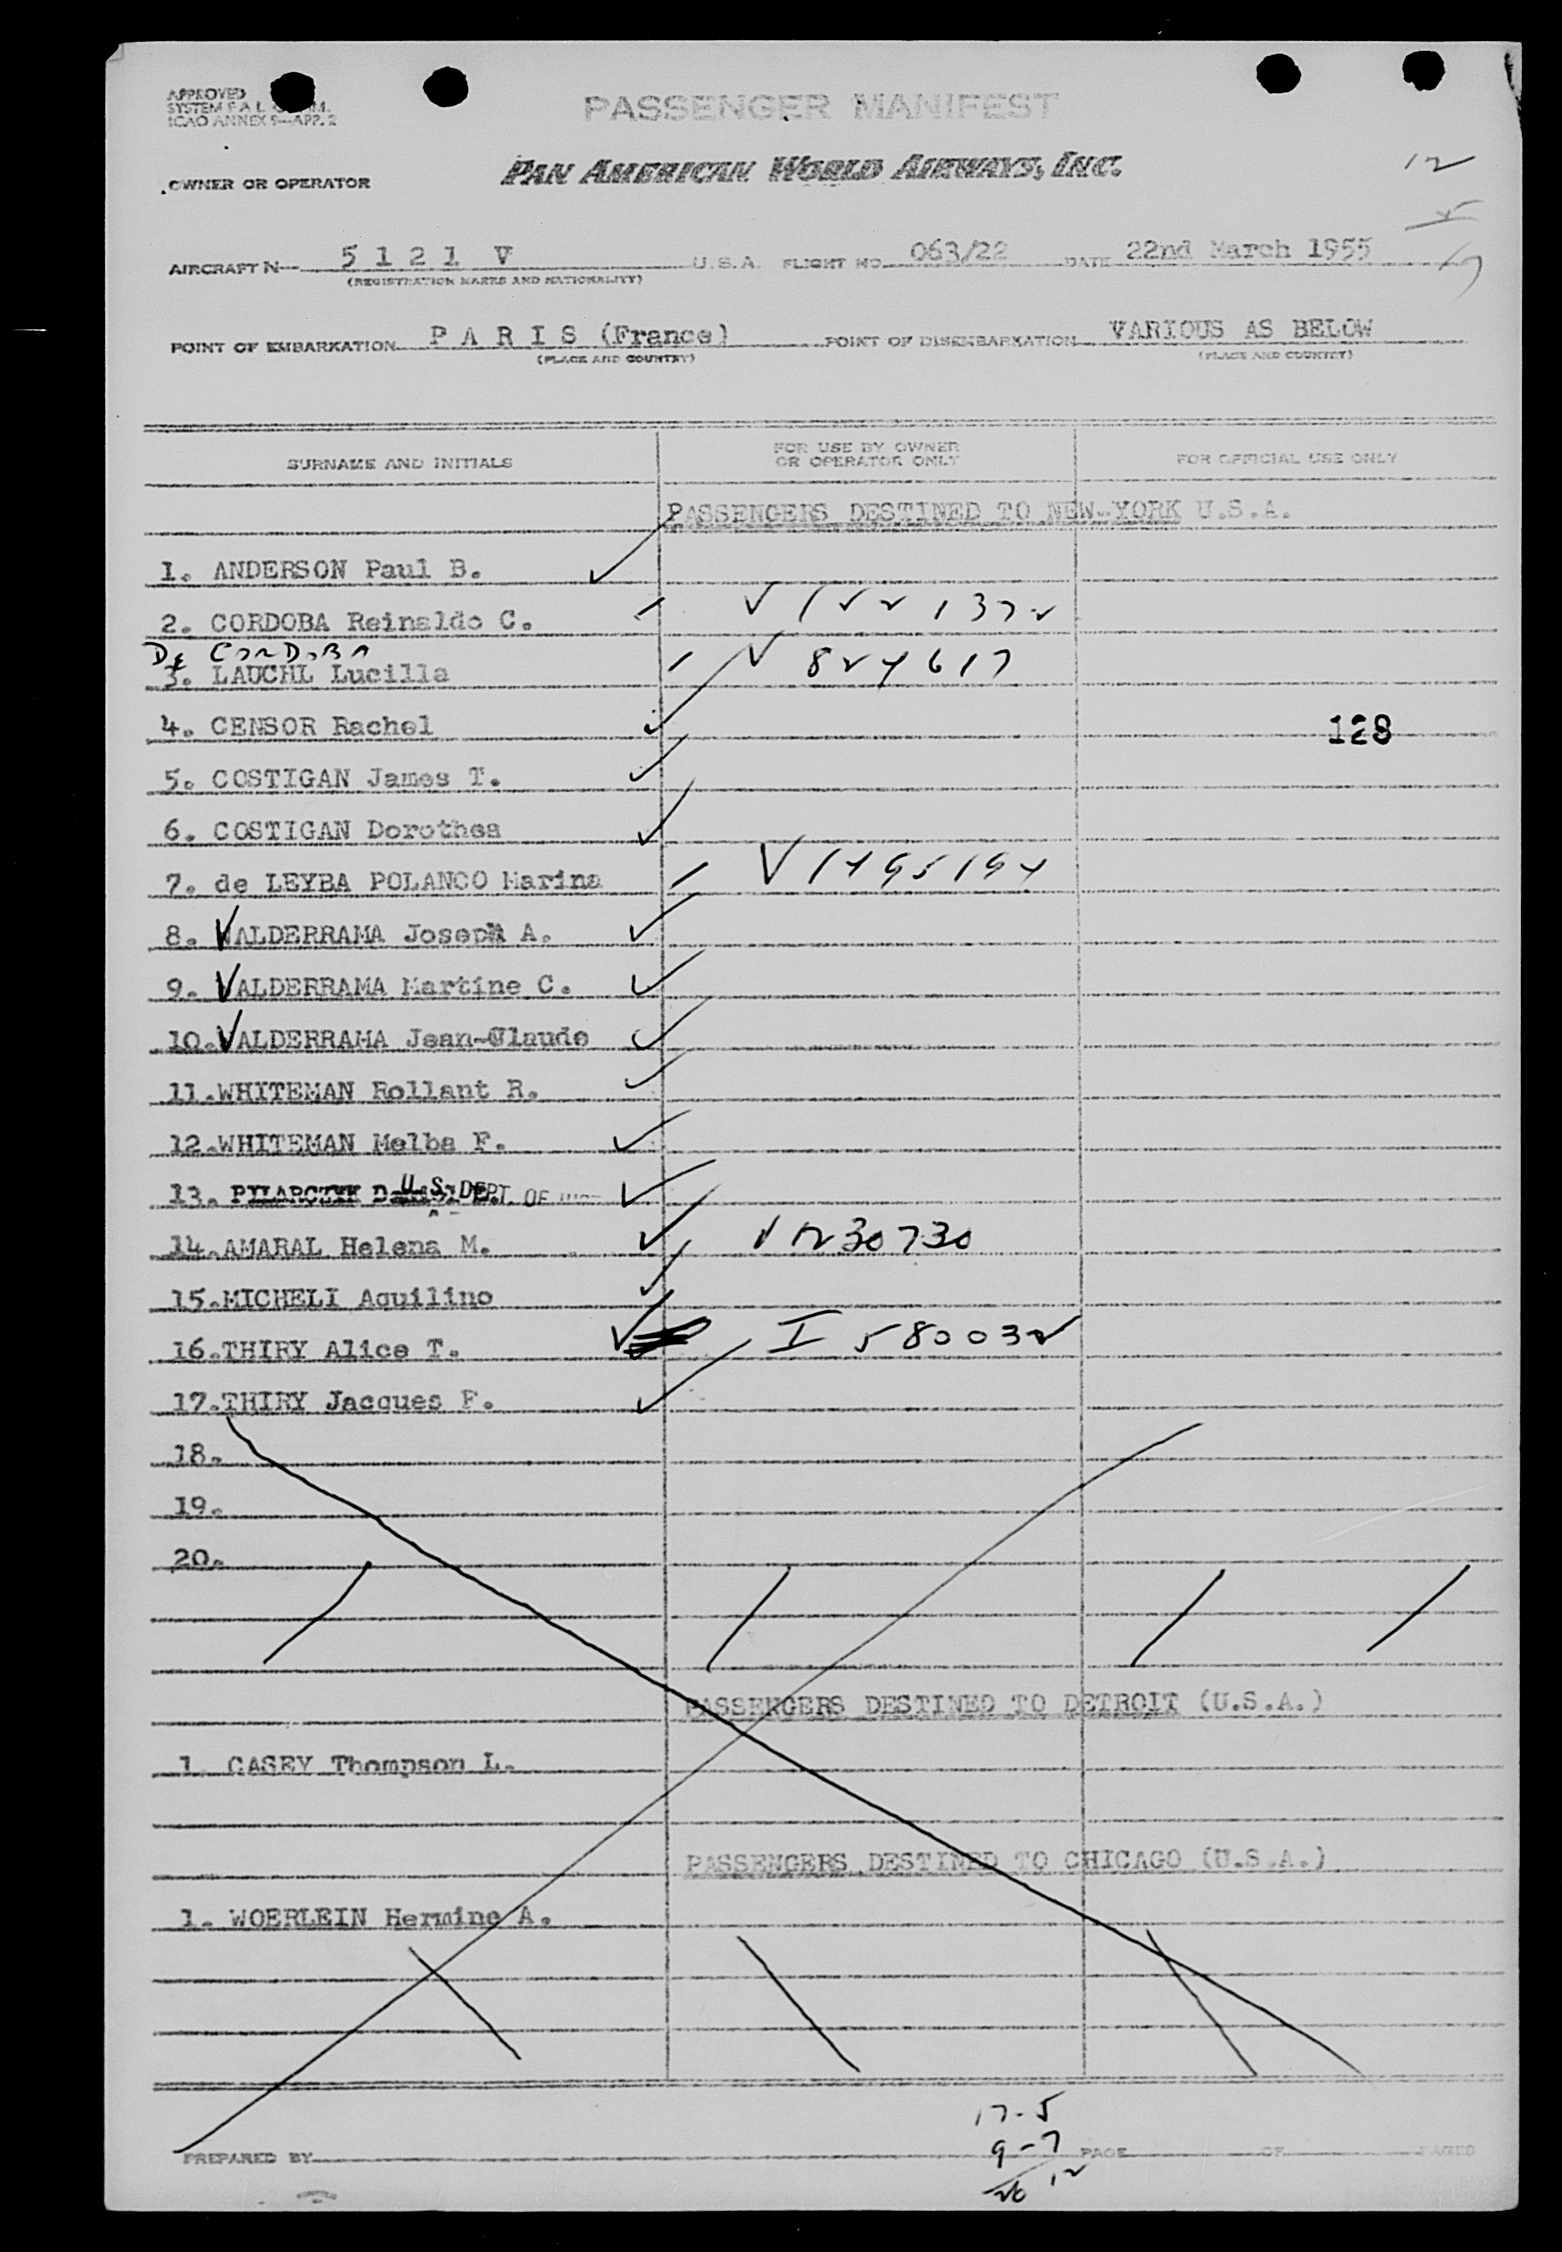 APPROVED
SYSTEM F.A.L.
ICAO ANNEX 9—APP. 2
PASSENGER MANIFEST
OWNER OR OPERATOR PAN AMERICAN WORLD AIRWAYS, INC.
12
AIRCRAFT N 5 1 2 1 V U.S.A. FLIGHT NO. 063/22 DATE 22nd March 1955
(REGISTRATION MARKS AND NATIONALITY)
POINT OF EMBARKATION P A R I S (France) POINT OF DISEMBARKATION VARIOUS AS BELOW
(PLACE AND COUNTRY) (PLACE AND COUNTRY)
SURNAME AND INITIALS FOR USE BY OWNER OR OPERATOR ONLY FOR OFFICIAL USE ONLY
PASSENGERS DESTINED TO NEW-YORK U.S.A.
1. ANDERSON Paul B.
2. CORDOBA Reinaldo C. V 1221372
DE CORDOBA
3. LAUCHL Lucilla V 824617
4. CENSOR Rachel 128
5. COSTIGAN James T.
6. COSTIGAN Dorothea
7. de LEYBA POLANCO Marina V 1495194
8. VALDERRAMA Joseph A.
9. VALDERRAMA Martine C.
10. VALDERRAMA Jean-Claude
11. WHITEMAN Rollant R.
12. WHITEMAN Melba F.
13. PYLARCZYK U.S. DEPT. OF
14. AMARAL Helena M. V 1230730
15. MICHELI Aquilino
16. THIRY Alice T. I 580032
17. THIRY Jacques F.
18.
19.
20.
PASSENGERS DESTINED TO DETROIT (U.S.A.)
1. CASEY Thompson L.
PASSENGERS DESTINED TO CHICAGO (U.S.A.)
1. WOERLEIN Hermine A.
17-5
9-7
PREPARED BY PAGE OF PAGES
26 12